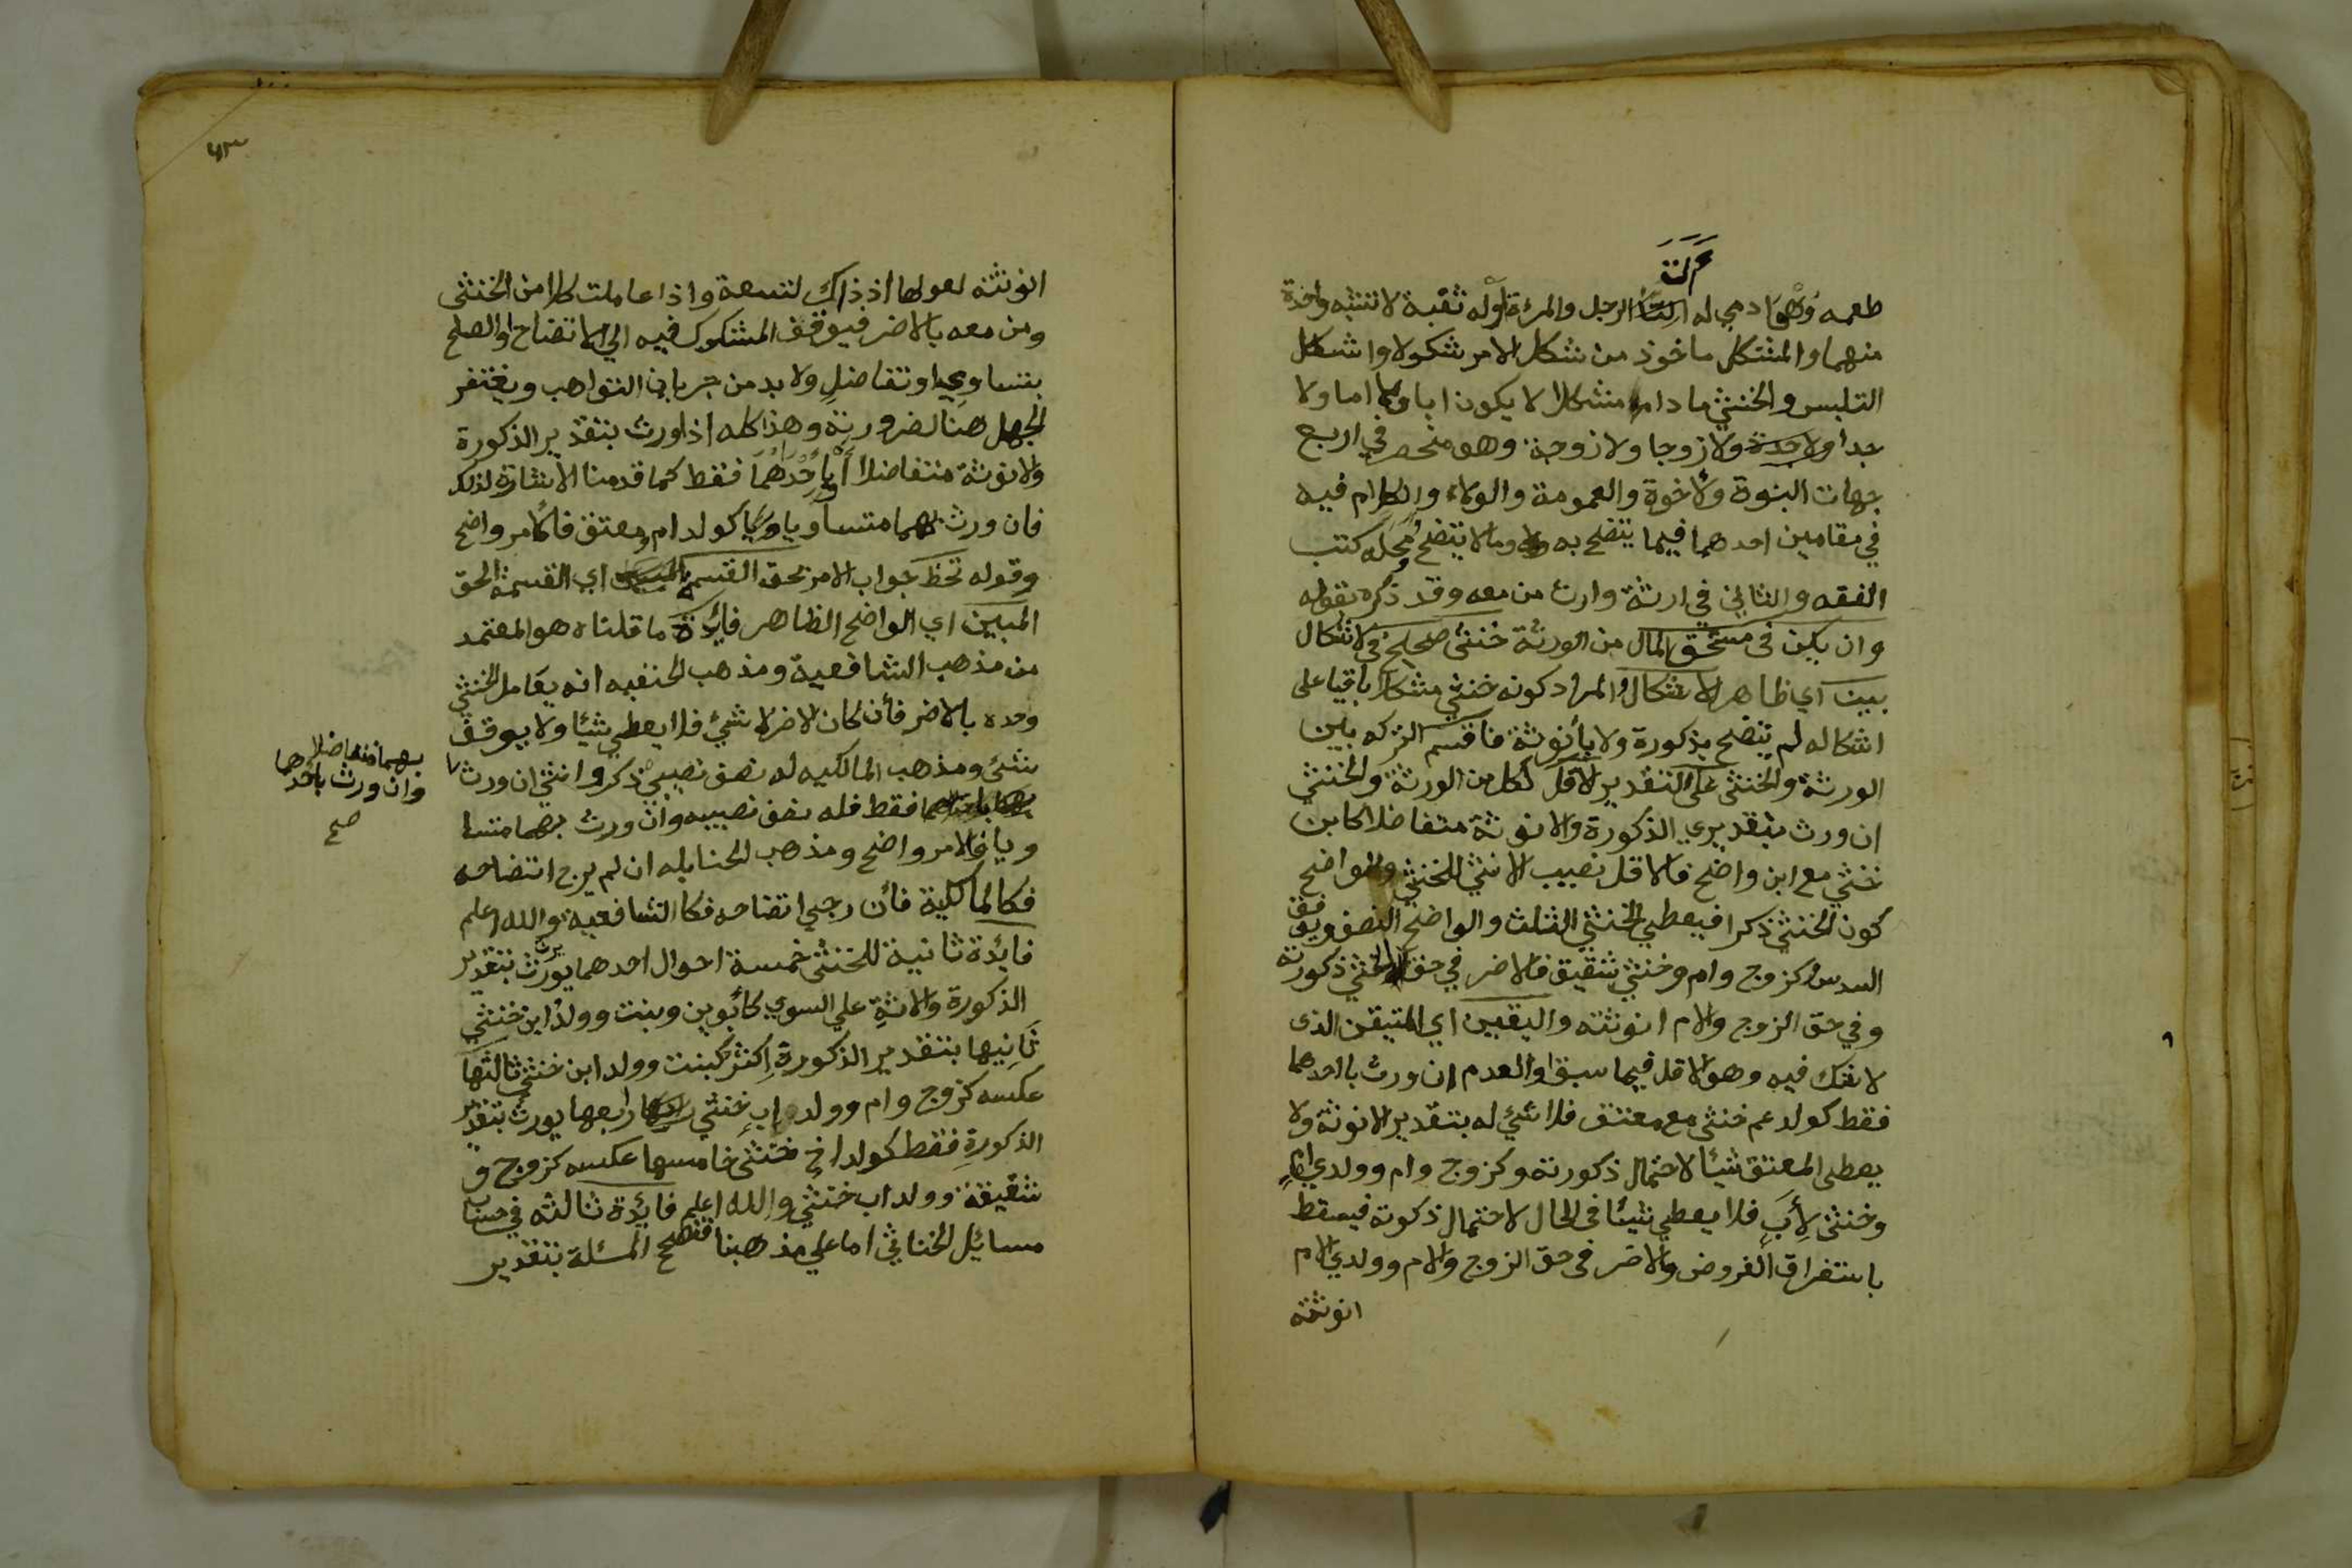 آلة
طعمه وهو ادمي له الرجل والمرءة اوله ثقبة لا تشبه واحدة
منهما والمشكل ماخوذ من شكل الامر شكولا واشكل
التلبس والخنثي ما دام مشكلا لا يكون ابا ولا اما ولا
جدا ولا جدة ولا زوجا ولا زوجة وهو منحصر في اربع
جهات البنوة والاخوة والعمومة والولاء والكلام فيه
في مقامين احدهما فيما يتضح به وما لا يتضح ومحله كتب
الفقه والثاني في ارثة وارث من معه وقد ذكره بقوله
وان يكن في مستحق المال من الورثة خنثى صحيح في الاشكال
بين اي ظاهر الاشكال والمراد كونه خنثي مشكلا باقيا على
اشكاله لم يتضح بذكورة ولا بأنوثة فاقسم التركه بين
الورثة والخنثى على التقدير الاقل لكل من الورثة والخنثي
ان ورث بتقديري الذكورة والانوثة متفاضلا كابن
خنثي مع ابن واضح فالاقل نصيب الانثي للخنثي وللواضح
كون الخنثي ذكرا فيعطي الخنثي الثلث والواضح النصف ويوقف
السدس وكزوج وام وخنثي شقيق فالاضر في حق الخنثي ذكورته
وفي حق الزوج والام انوثته واليقين اي المتيقن الذى
لا شك فيه وهو الاقل فيما سبق او العدم ان ورث باحدهما
فقط كولد عم خنثى مع معتق فلا شيء له بتقدير الانوثة ولا
يعطى المعتق شيأ لاحتمال ذكورته وكزوج وام وولدي ام
وخنثى لأب فلا يعطي شيئا في الحال لاحتمال ذكوته فيسقط
باستغراق الفروض والاضر في حق الزوج والام وولدي الام
انوثته
٤٣
انوثته لعولها اذ ذاك لتسعة واذا عاملت كلا من الخنثى
ومن معه بالاضر فيوقف المشكوك فيه الي الاتضاح او الصلح
بتساوي او تفاضل ولا بد من جريان التواهب ويغتفر
الجهل هنا لضرورة وهذا كله اذا ورث بتقدير الذكورة
والانوثة متفاضلا او باحدهما فقط كما قدمنا الاشارة لذلك
فان ورث بهما متساويا كولد ام ومعتق فالامر واضح
وقوله تحظ جواب الامر بحق القسمة المبين اي القسمة الحق
المبين اي الواضح الظاهر فائدة ما قلناه هو المعتمد
من مذهب الشافعية ومذهب الحنفيه انه يعامل الخنثي
وحده بالاضر فأن كان الاضر لا شيئ فلا يعطي شيئا ولا يوقف
شيئ ومذهب المالكيه له نصف نصيبي ذكر وانثي ان ورث
بهما متفاضلا
وان ورث باحدهما
صح
فقط فله نصف نصيبه وان ورث بهما متسا
ويا فالامر واضح ومذهب الحنابله ان لم يرج اتضاحه
فكالمالكية فأن رجي اتضاحه فكالشافعيه والله اعلم
فائدة ثانية للخنثى خمسة احوال احدهما يرث بتقدير
الذكورة والانثة علي السوي كأبوين وبنت وولد ابن خنثي
ثانيها بتقدير الذكورة اكثر كبنت وولد ابن خنثي ثالثها
عكسه كزوج وام وولد اب خنثي رابعها يورث بتقدير
الذكورة فقط كولد اخ خنثى خامسها عكسه كزوج و
شقيقة وولد اب خنثي والله اعلم فائدة ثالثه في حساب
مسائل الخناثي اما علي مذهبنا فصحح المسئلة بتقدير